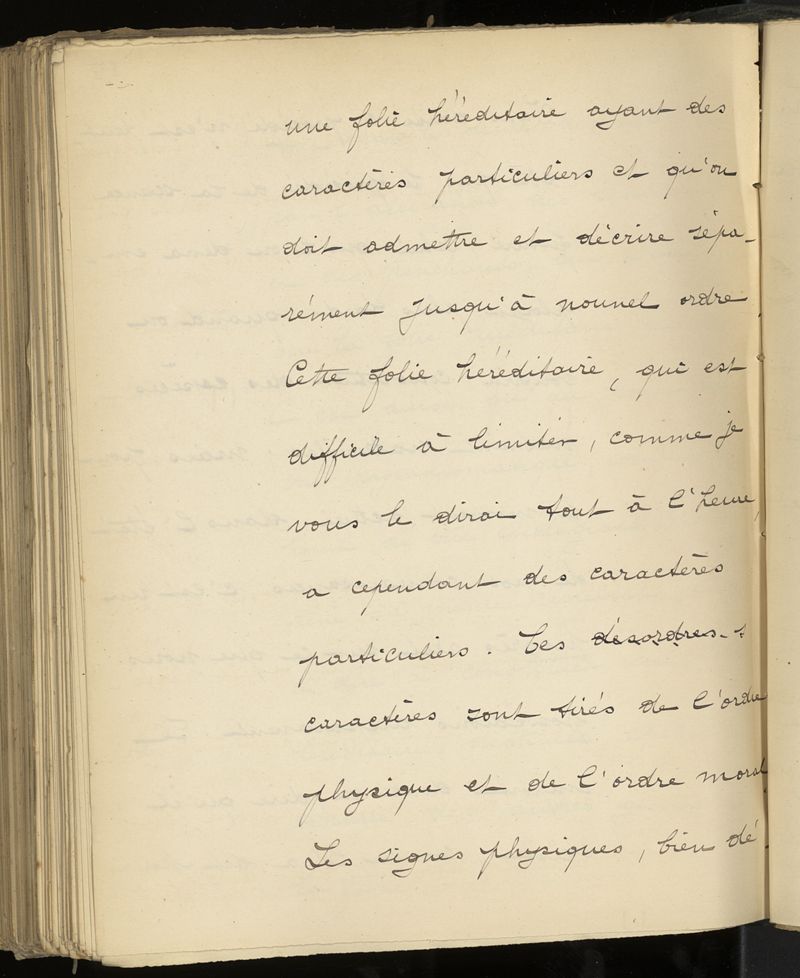 une folie héréditaire ayant des
caractères particuliers et qu'on
doit admettre et décrire sépa-
rément jusqu'à nouvel ordre
Cette folie héréditaire, qui est
difficile à limiter, comme je
vous le dirai tout à l'heure,
a cependant des caractères
particuliers. Ces désordres
caractères sont tirés de l'ordre
physique et de l'ordre moral
Les signes physiques, bien dé